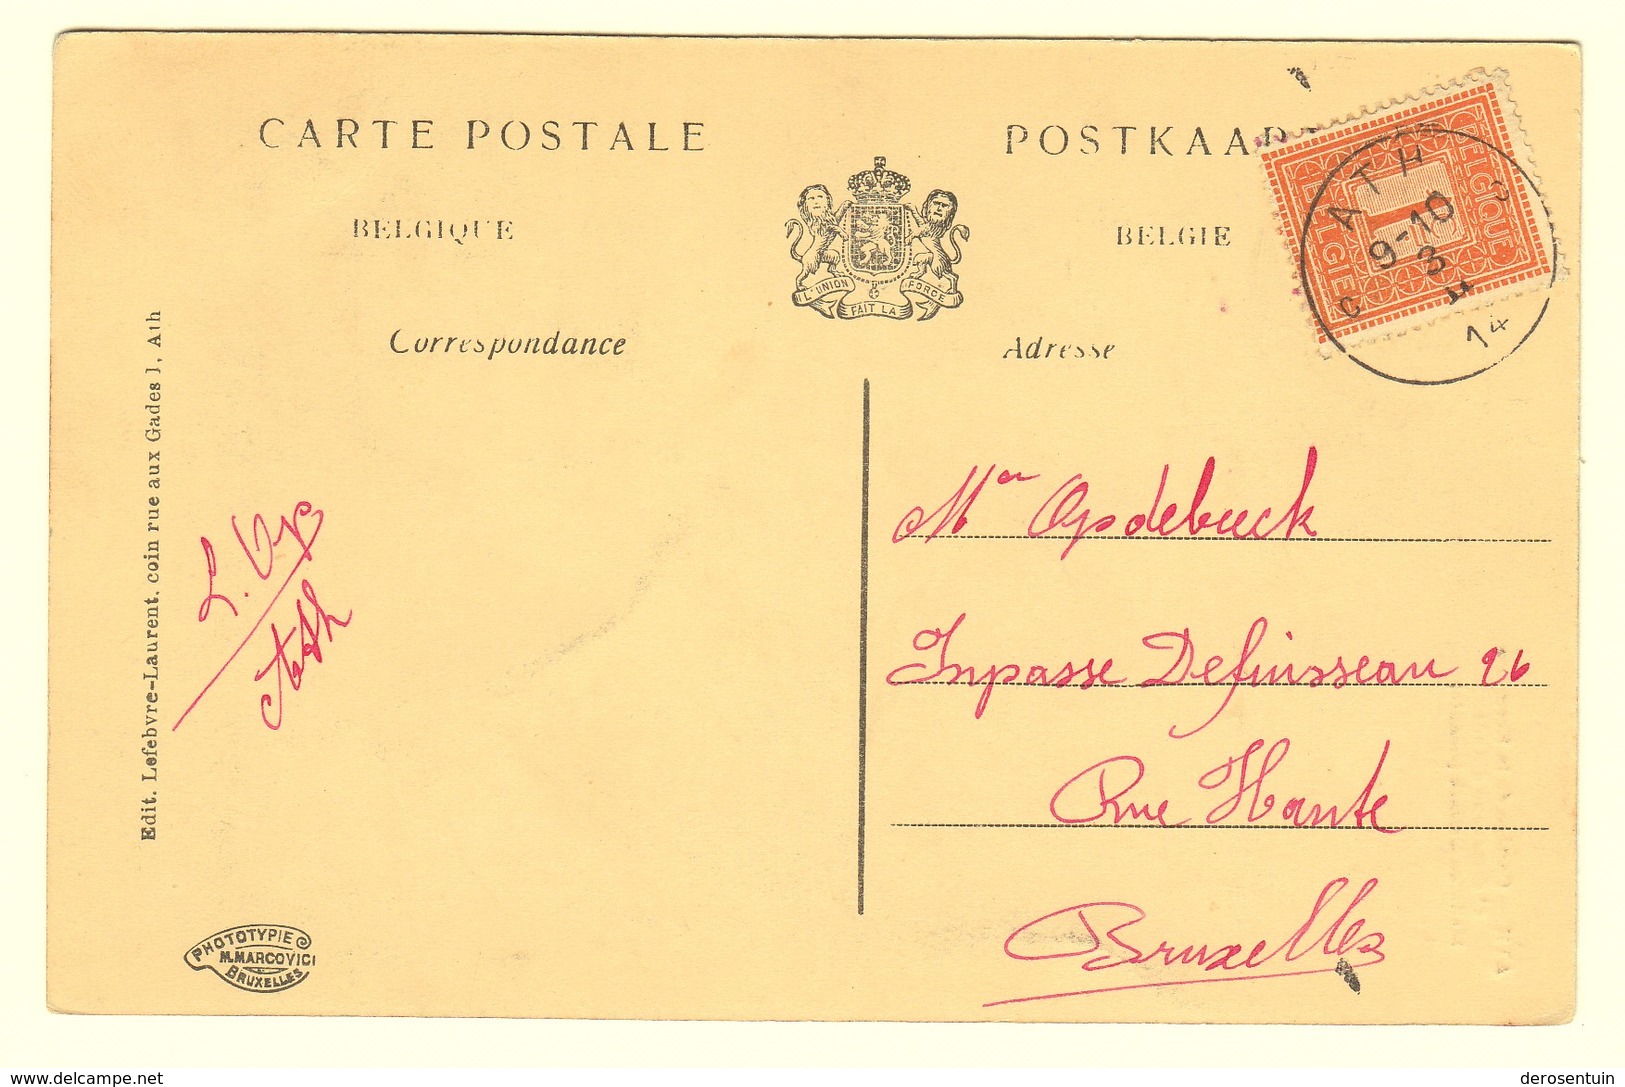 CARTE POSTALE
POSTKAAR
BELGIQUE
BELGIE
L'UNION FAIT LA FORCE
Correspondance
Adresse
BELGIQUE
1
BELGIË
ATH
C C
9-10
3
14
Edit. Lefebvre-Laurent, coin rue aux Gades 1, Ath
L.
Ath
Mr Opdebeeck
Inpasse Defuisseau 26
Rue Haute
Bruxelles
PHOTOTYPIE
M. MARCOVICI
BRUXELLES
www.delcampe.net
derosentuin